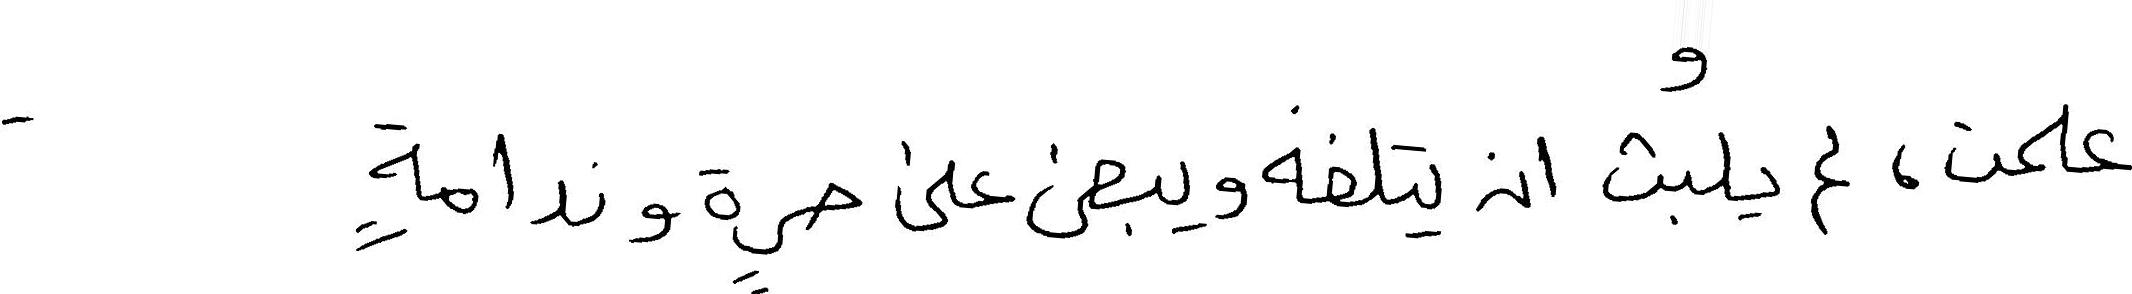 علمت، لم يلبثُ ان يتلفه ويبقى على حسرةٍ وندامةٍ -